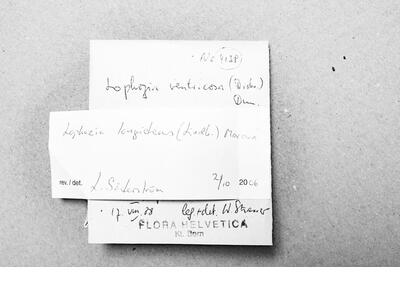 No 4128
Lophozia ventricosa (Dicks.)
Dum.
Lophozia longidens (Lindb.) Macoun
rev./det. L. Söderström 2/10 2006
17. VIII. 88 leg + det. W. Strasser
FLORA HELVETICA
Kt. Bern